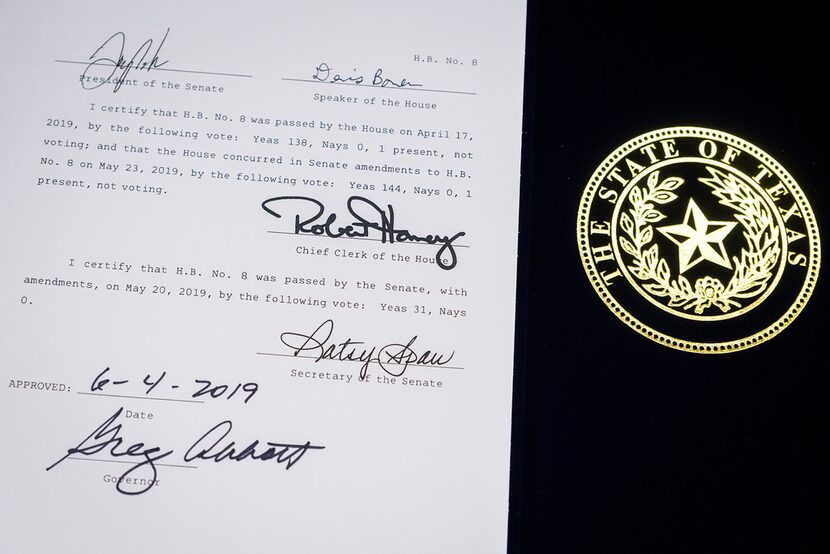 H.B. No. 8
President of the Senate
Dennis Bonnen
Speaker of the House
I certify that H.B. No. 8 was passed by the House on April 17,
2019, by the following vote: Yeas 138, Nays 0, 1 present, not
voting; and that the House concurred in Senate amendments to H.B.
No. 8 on May 23, 2019, by the following vote: Yeas 144, Nays 0, 1
present, not voting.
Robert Haney
Chief Clerk of the House
I certify that H.B. No. 8 was passed by the Senate, with
amendments, on May 20, 2019, by the following vote: Yeas 31, Nays
0.
Patsy Spaw
Secretary of the Senate
APPROVED: 6-4-2019
Date
Greg Abbott
Governor
THE STATE OF TEXAS